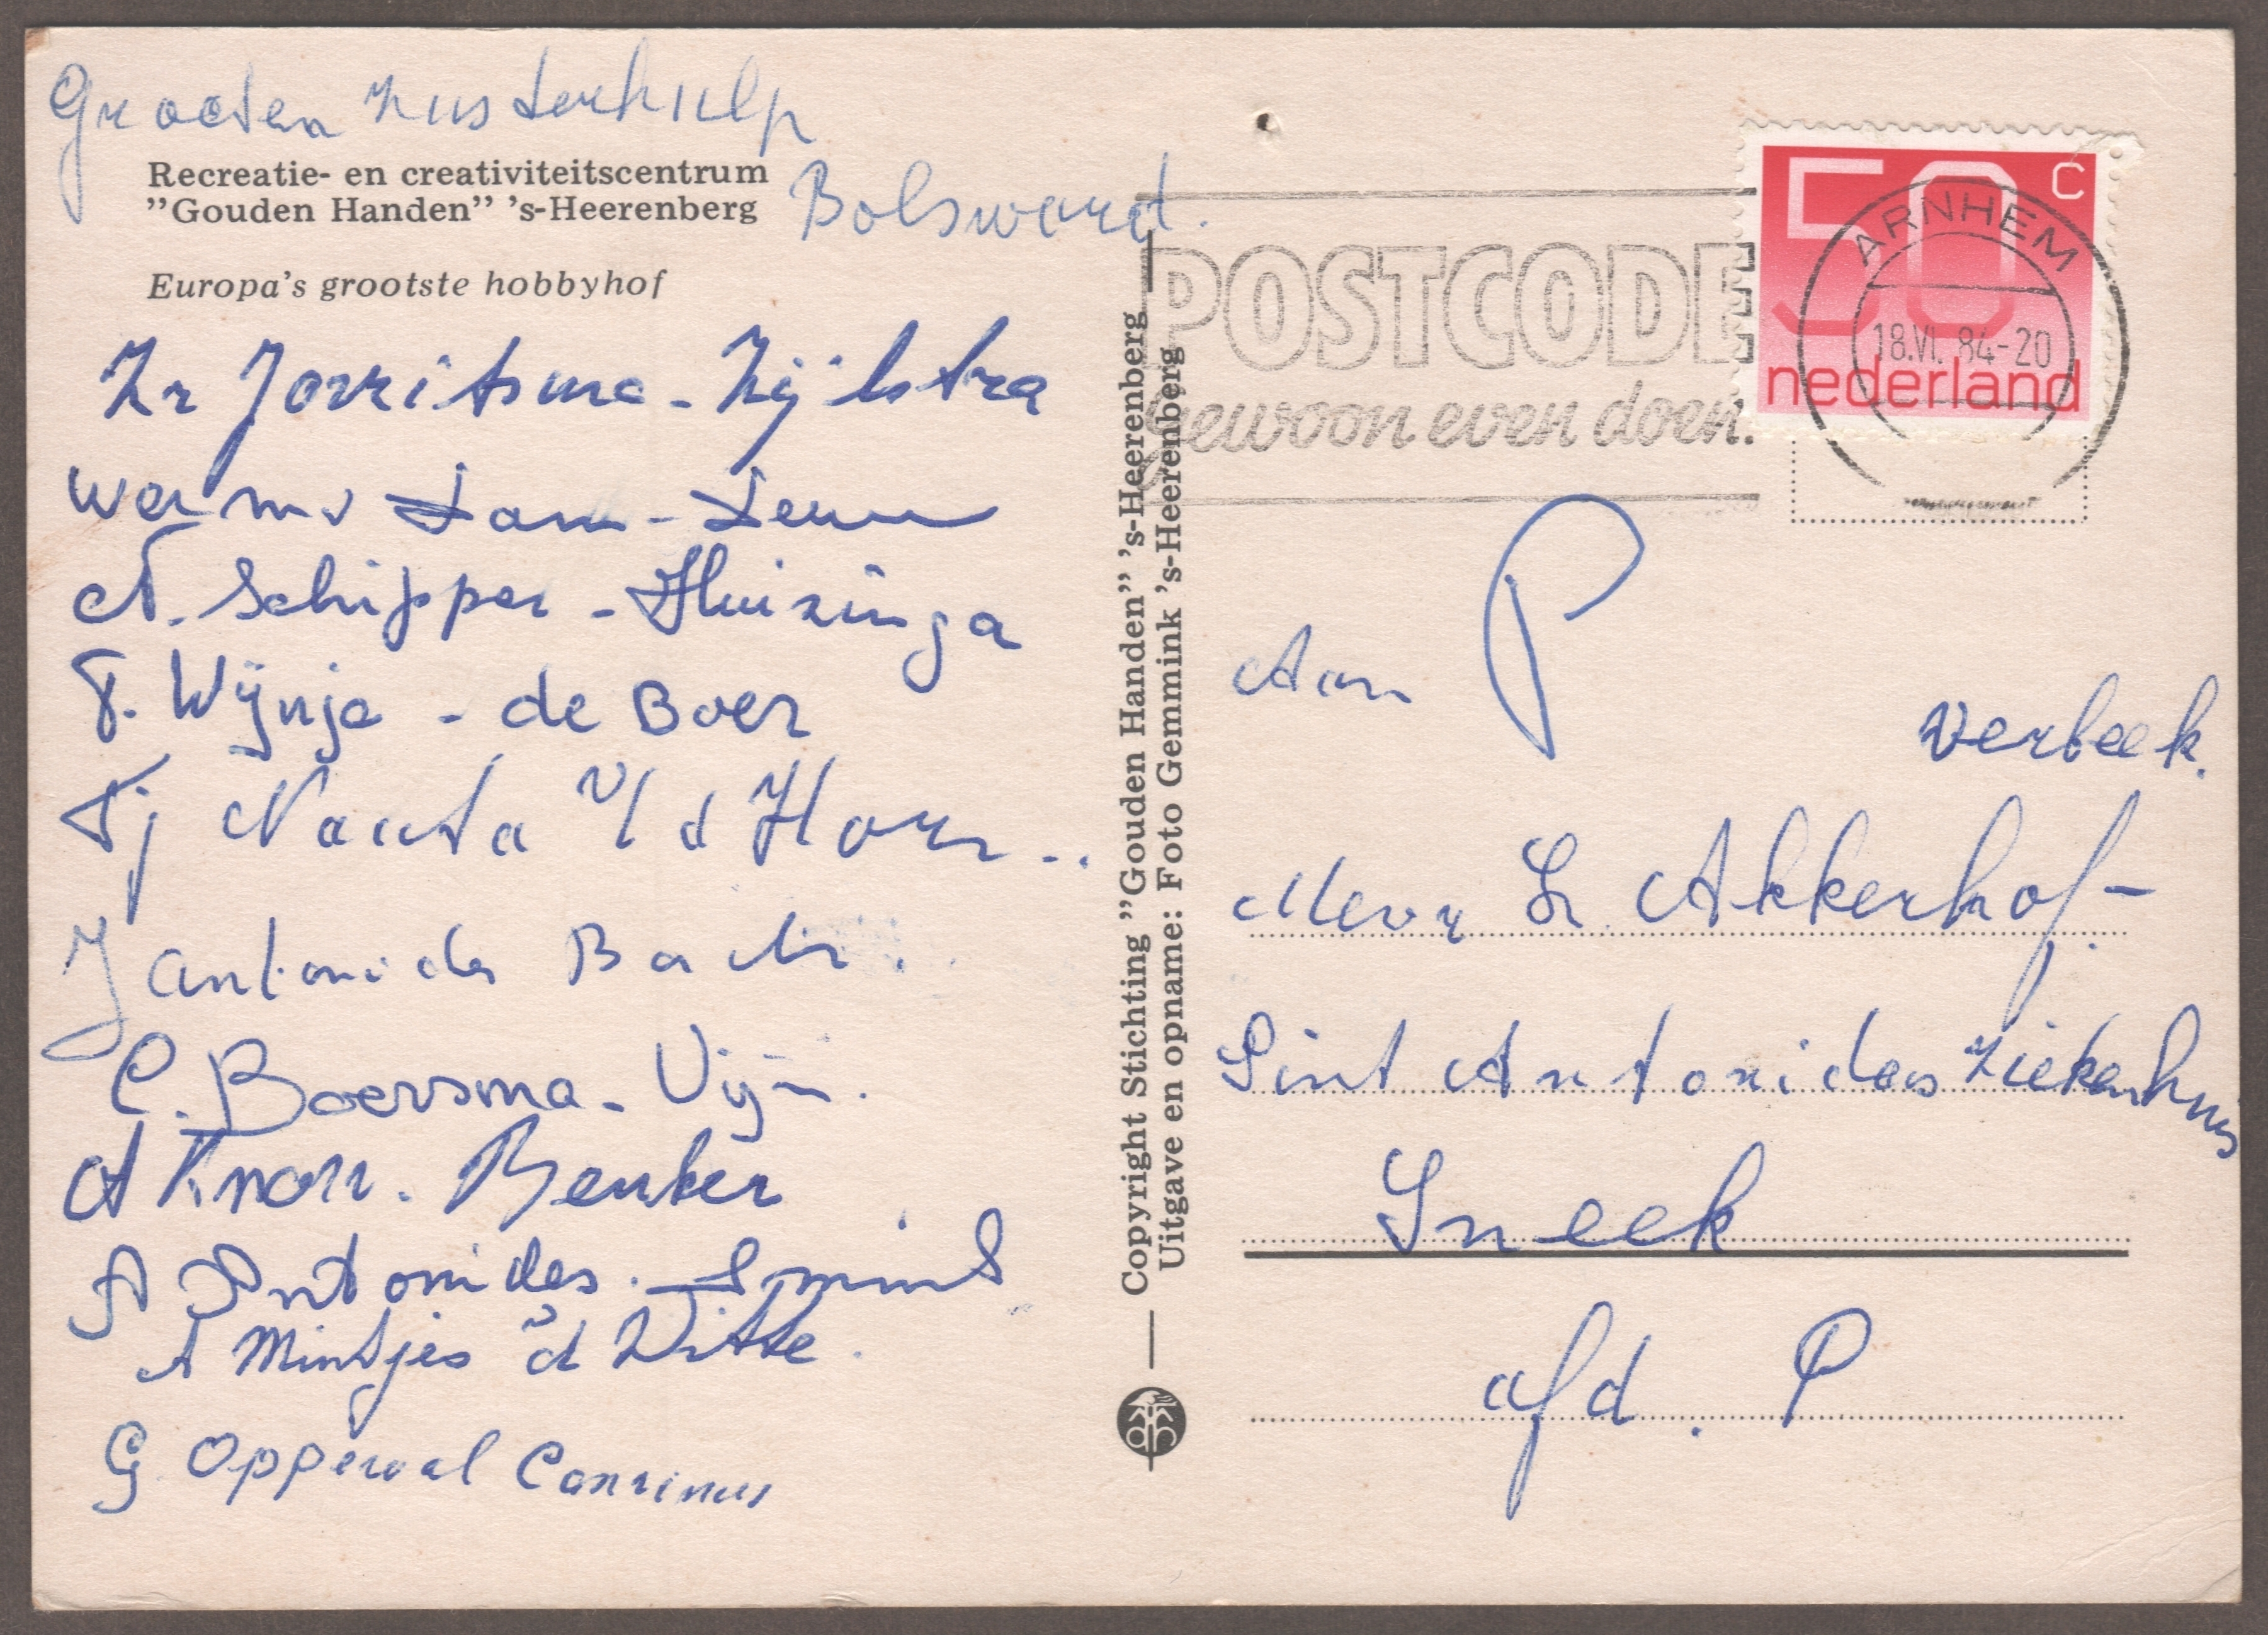 Grooten Zusterhulp
Bolsward.
Recreatie- en creativiteitscentrum
"Gouden Handen" 's-Heerenberg
Europa's grootste hobbyhof
Zr Jorritsma - Zijlstra
N. Schipper - Huizinga
T. Wijnja - de Boer
Tj Nauta v/d
J Antonides
C. Boersma -
A Knorr. Beuker
A Antonides.
A Mintjes d Witte.
G Opperwal
Copyright Stichting "Gouden Handen" 's-Heerenberg
Uitgave en opname: Foto Gemmink 's-Heerenberg
POSTCODE
gewoon even doen.
50 c
nederland
ARNHEM
18.VI. 84-20
P
Aan
Verbeek.
Mevr L Akkerhof-
Sint Antonides Ziekenhuis
Sneek
afd. P